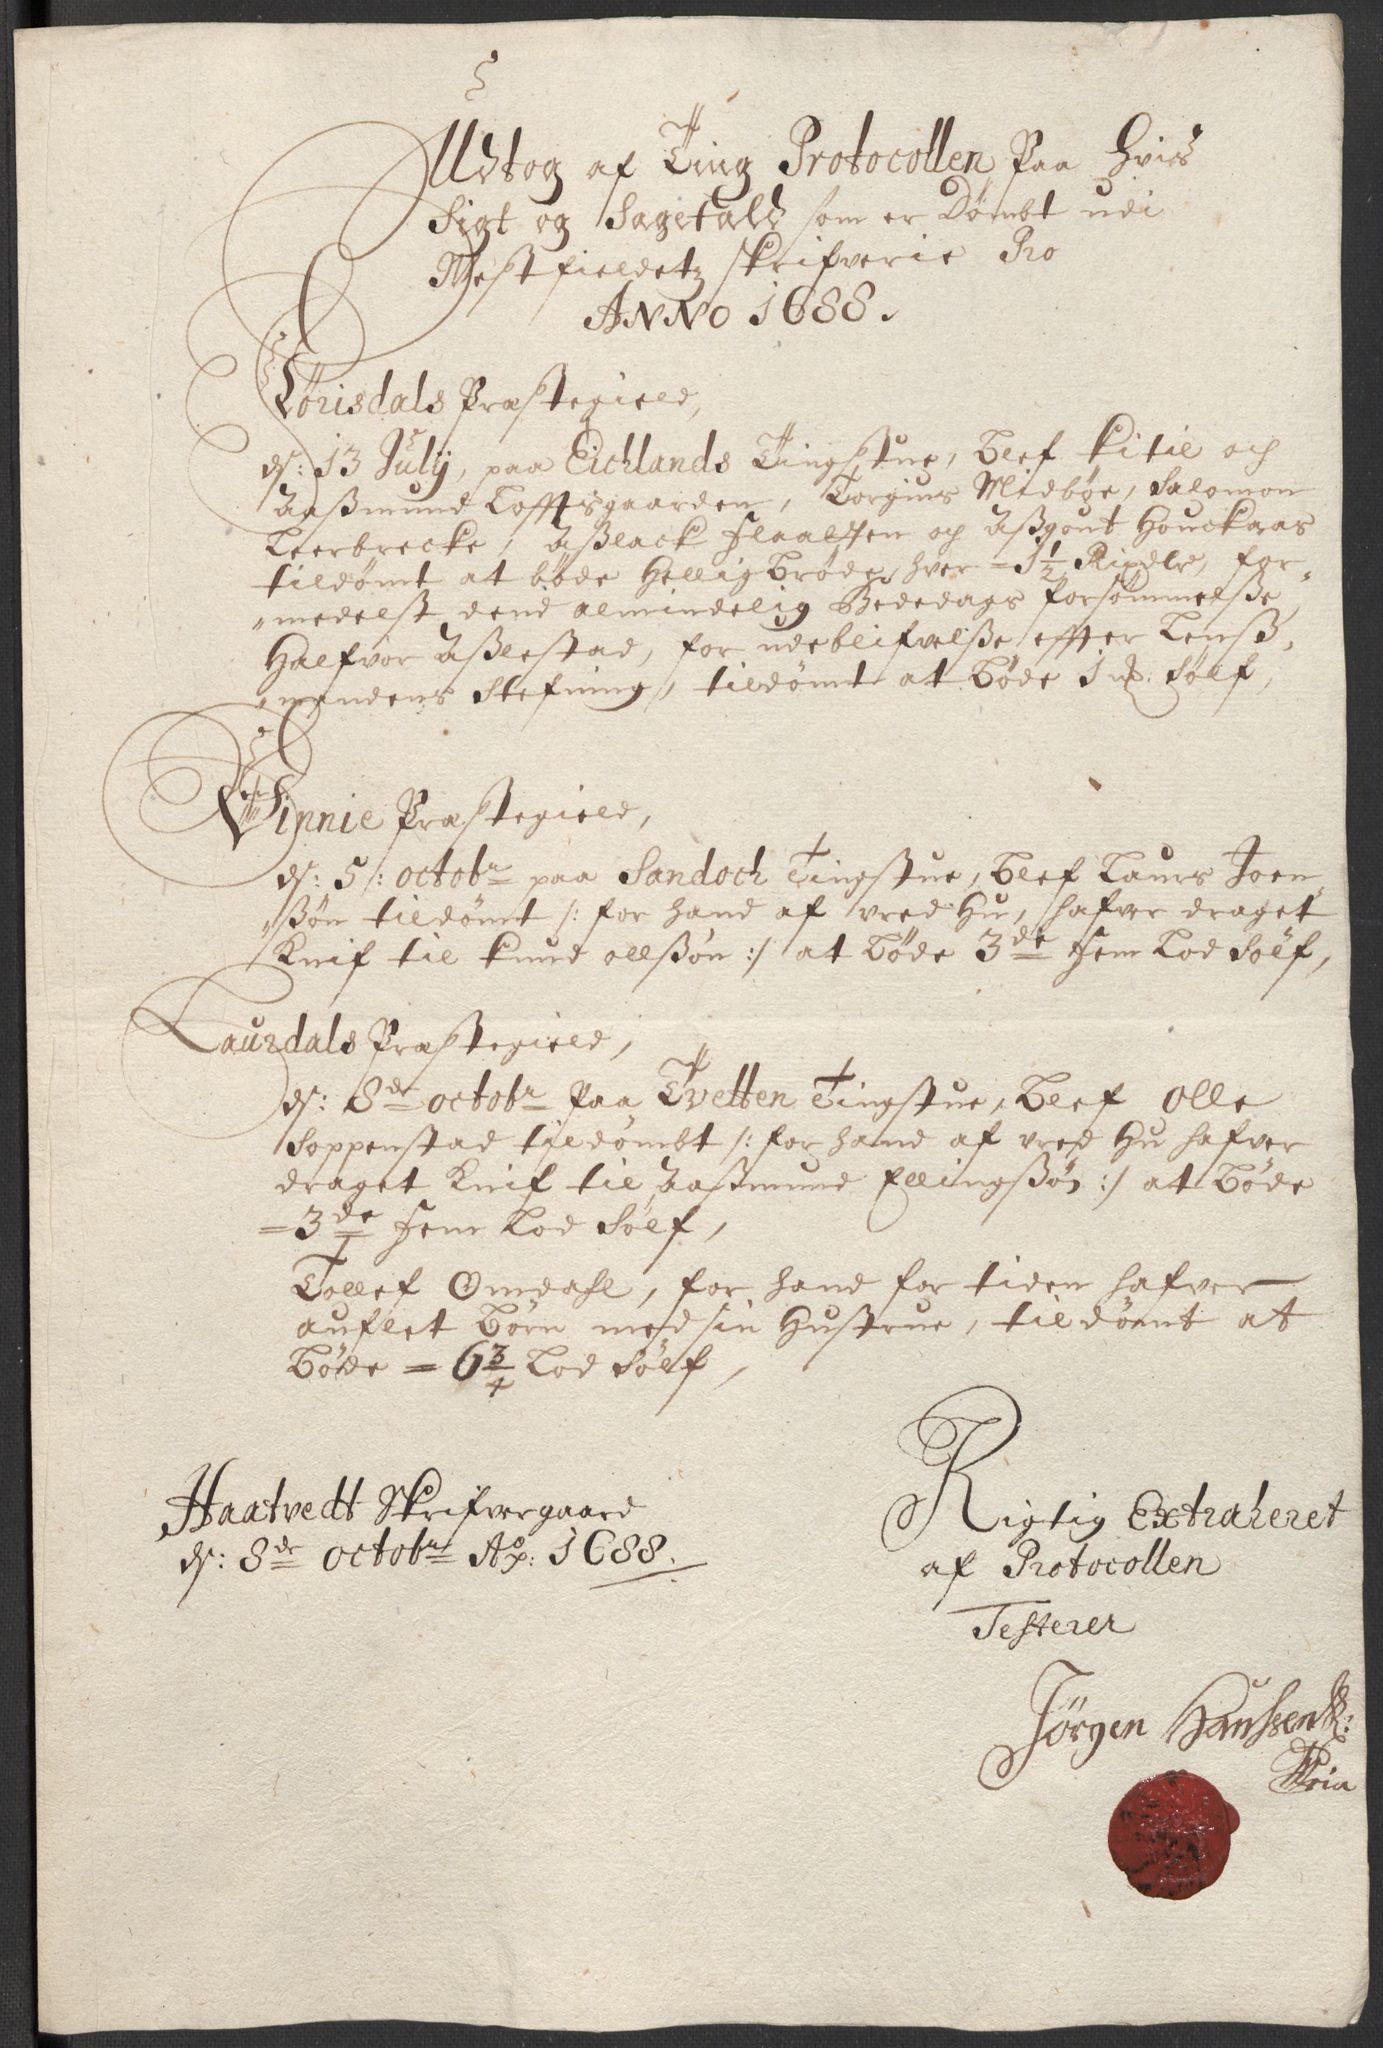 Udtog af Ting Protocollen Paa hvis
Sigt og Sagefald som er Dømbt udi
Westfieldetz Skrifverie Pro
ANNO 1688.
Hörisdals Præstegield,
ds: 13 July, paa Eichlands Tingstue, blef Kitil och
Aaßmund Lofftsgaarden, Torgius Midbøe, Salomon
Leerbrecke, Aßlack Flaatten och Aßgout Houckaas
tildömt at böde Helligbröde, hver = 1 1/2 Rixdlr, for„
„medelst dend almindelig Bededags forsömmelße,
Halfvor Aßlestad, for udeblifvelße effter Lenß„
„mandens Stefning, tildömt at böde 1 ℔. Sølf,
Winnie Præstegield,
ds: 5: octobr paa Sandoch Tingstue, blef Laurs Joen„
„ßön tildömt /: for hand af vred Hu, hafver draget
Knif til Knud ollßön :/ at böde 3de fem Lod Sölf,
Laurdals Præstegield,
ds: 8de octobr Paa Tvetten Tingstue, blef Olle
Soppenstad tildömbt /: for hand af vred Hu hafver
draget Knif til Aaßmund Ellingßön :/ at böde
= 3de fem Lod Sölf,
Tollef Omdahl, for hand for tiden hafver
auflet börn med sin Hustrue, tildömt at
böde = 6 3/4 Lod Sölf,
Haatvedt Skrifvergaard
ds: 8de octobr Ao: 1688.
Rigtig Extraheret
af Protocollen
Testerer
Jörgen Hanssen
Mria